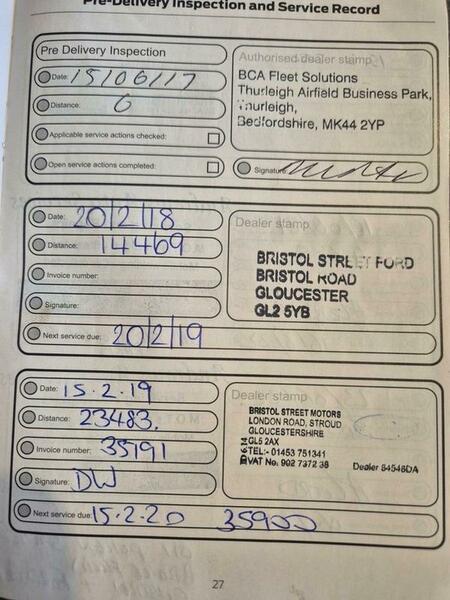 Pre-Delivery Inspection and Service Record
Pre Delivery Inspection
Date: 15/06/17
Distance: 6
Applicable service actions checked:
Open service actions completed:
Authorised dealer stamp
BCA Fleet Solutions
Thurleigh Airfield Business Park,
Thurleigh,
Bedfordshire, MK44 2YP
Signature
Date: 20/2/18
Distance: 14469
Invoice number:
Signature:
Next service due: 20/2/19
Dealer stamp
BRISTOL STREET FORD
BRISTOL ROAD
GLOUCESTER
GL2 5YB
Date: 15.2.19
Distance: 23483.
Invoice number: 35191
Signature: DW
Next service due: 15.2.20 35900
Dealer stamp
BRISTOL STREET MOTORS
LONDON ROAD, STROUD
GLOUCESTERSHIRE
GL5 2AX
TEL:- 01453 751341
VAT No. 902 7372 38
Dealer 84548DA
27